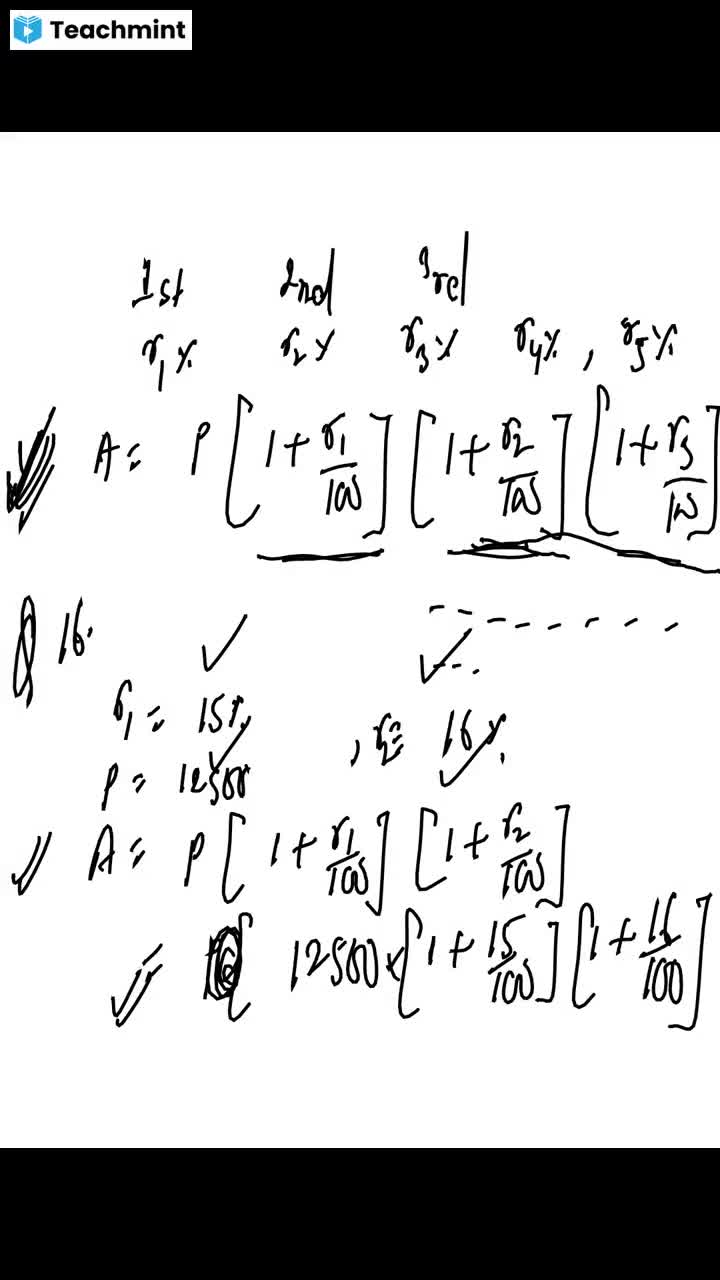 Teachmint
1st 2nd 3rd
r₁% r₂% r₃% r₄%, r₅%
A = P [1 + r₁/100] [1 + r₂/100] [1 + r₃/100]
Q 16.
r₁ = 15%, r₂ = 16%.
P = 12500
A = P [1 + r₁/100] [1 + r₂/100]
= 12500 × [1 + 15/100] [1 + 16/100]